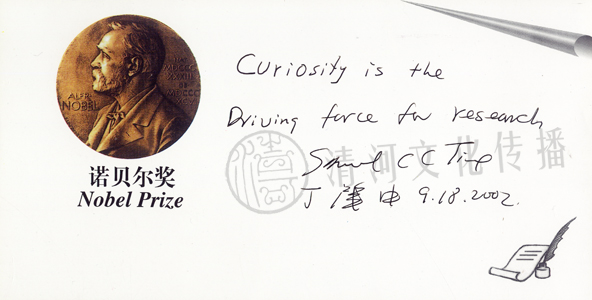 ALFR.
NOBEL
诺贝尔奖
Nobel Prize
Curiosity is the
Driving force for research
Samuel CC Ting
丁肇中 9.18.2002.
清河文化传播